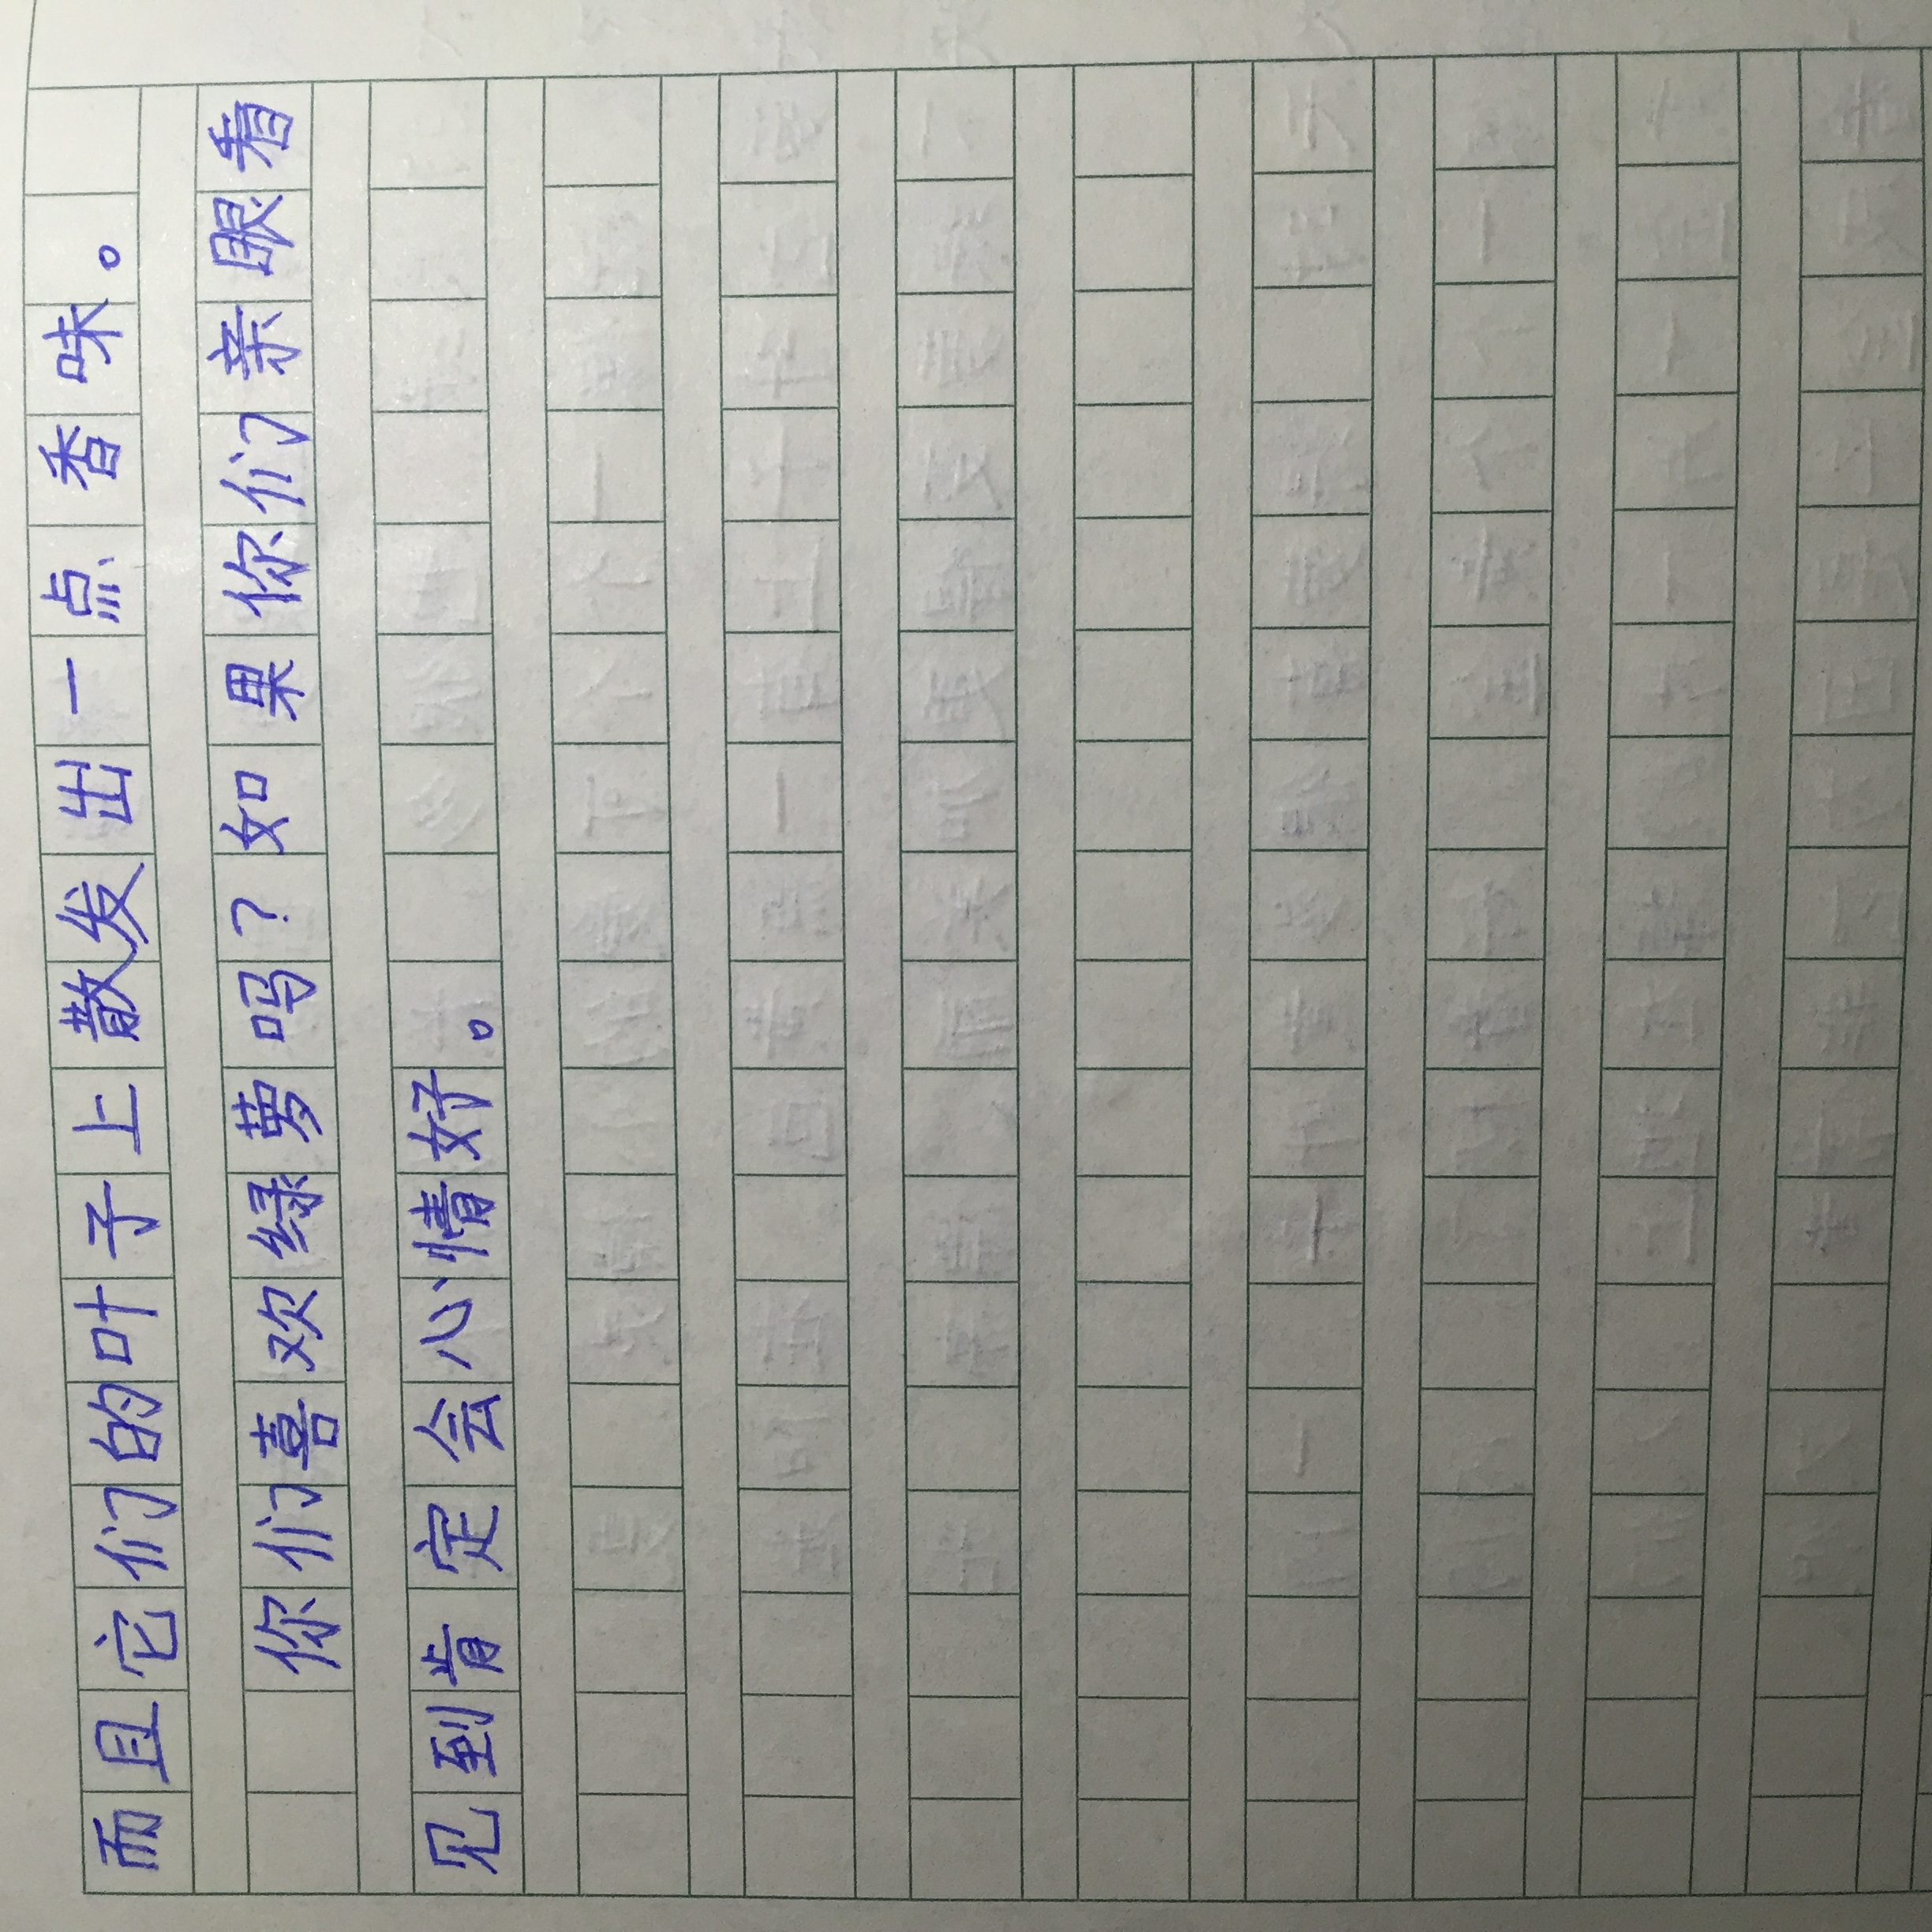 而且它们的叶子上散发出一点香味。
你们喜欢绿萝吗?如果你们亲眼看
见到肯定会心情好。